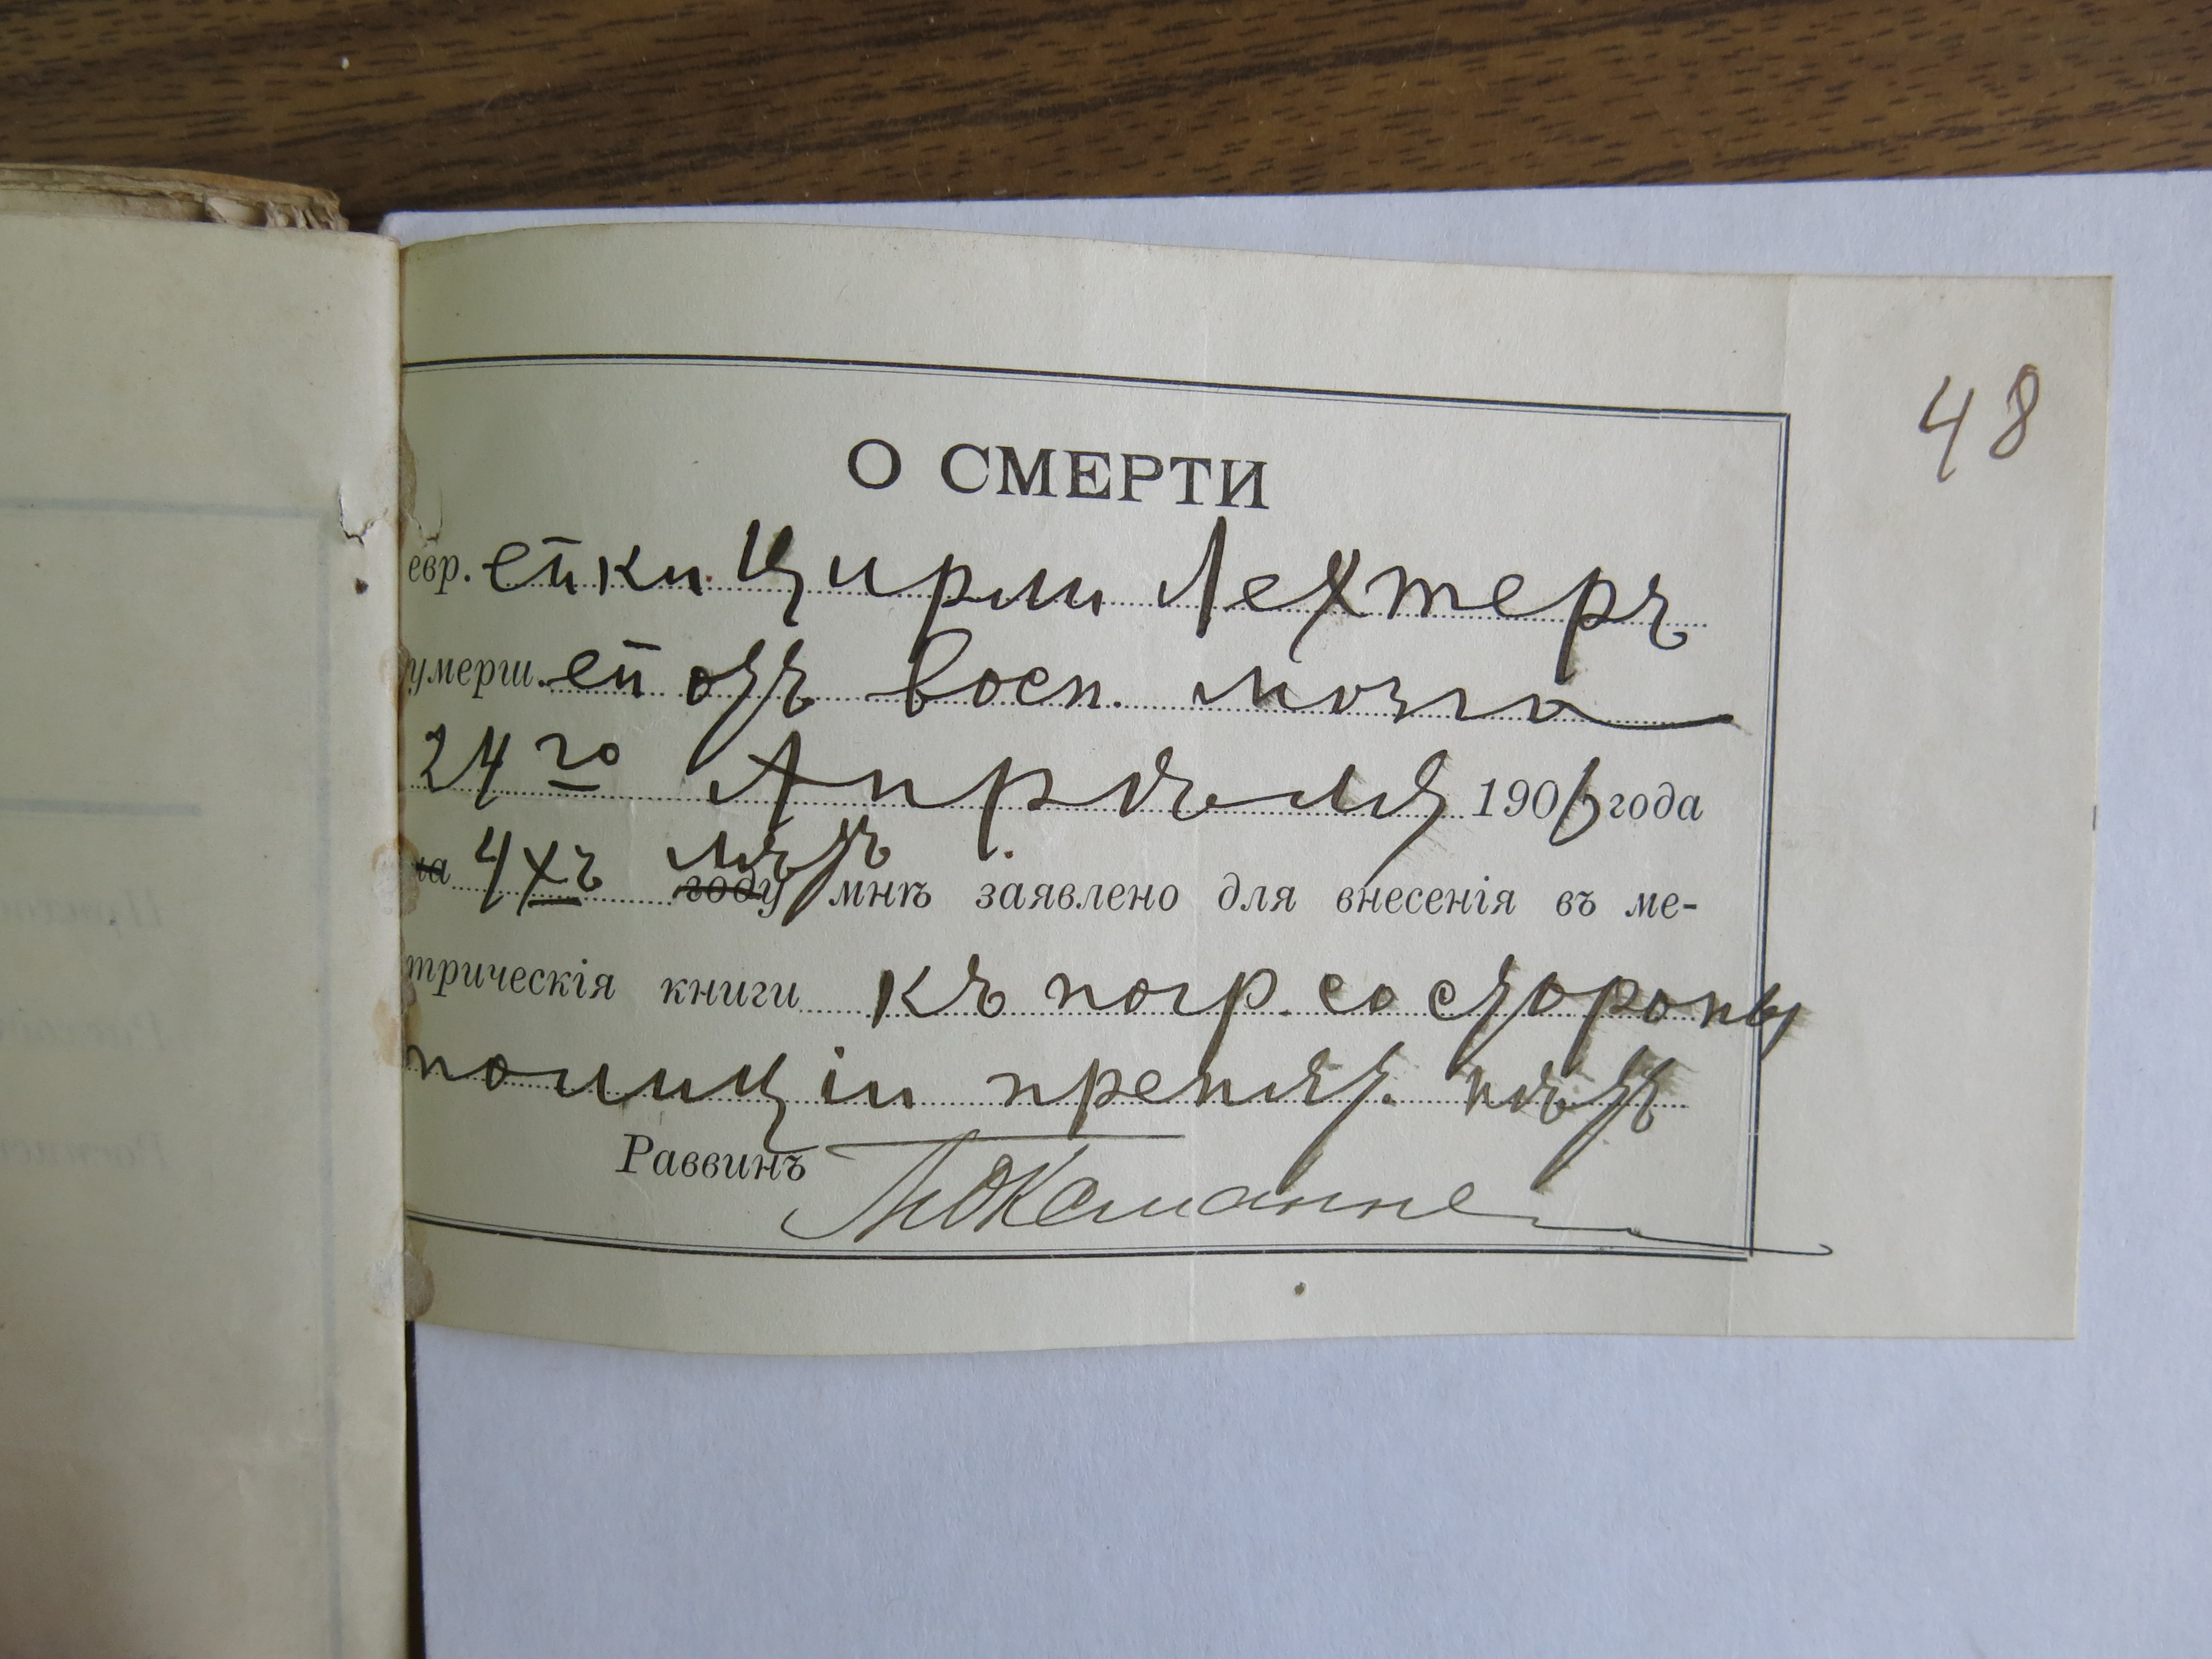 48
О СМЕРТИ
евр. ейки Цирли Лехтеръ
умерш. ей отъ восп. мозга
24го Апрѣля 1906 года
на 4хъ лѣтъ году мнѣ заявлено для внесенія въ ме-
трическія книги къ погр. со стороны
полиціи препят. нѣтъ
Раввинъ